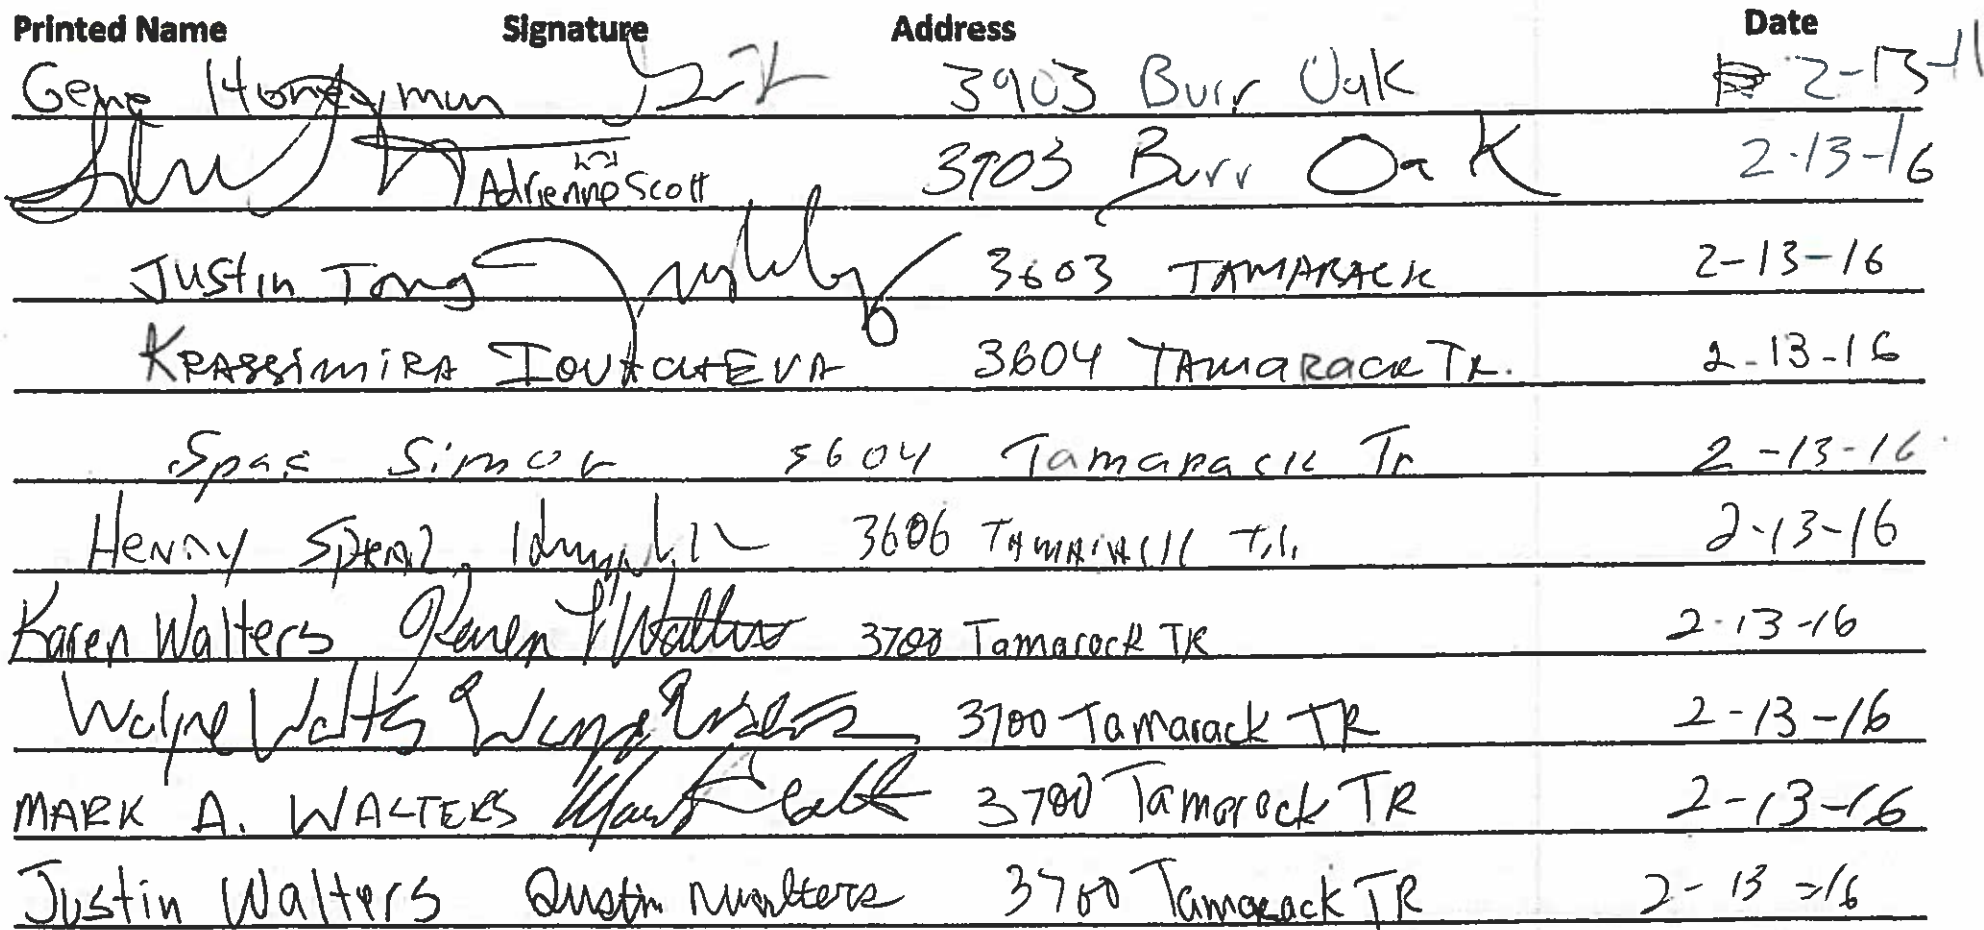 Printed Name Signature Address Date
Gene Honeymun 3903 Burr Oak 2-13-11
Adrienne Scott 3903 Burr Oak 2-13-16
Justin Tong 3603 TAMARACK 2-13-16
KRASSIMIRA IOVTCHEVA 3604 TAMARACK TR. 2-13-16
Spas Simov 3604 Tamarack Tr 2-13-16
Henny 3606 TAMARACK Tr. 2-13-16
Karen Walters Karen Walters 3700 Tamarack TR 2-13-16
Wayne Walters 3700 Tamarack TR 2-13-16
MARK A. WALTERS 3700 Tamarack TR 2-13-16
Justin Walters Justin Walters 3700 Tamarack TR 2-13-16